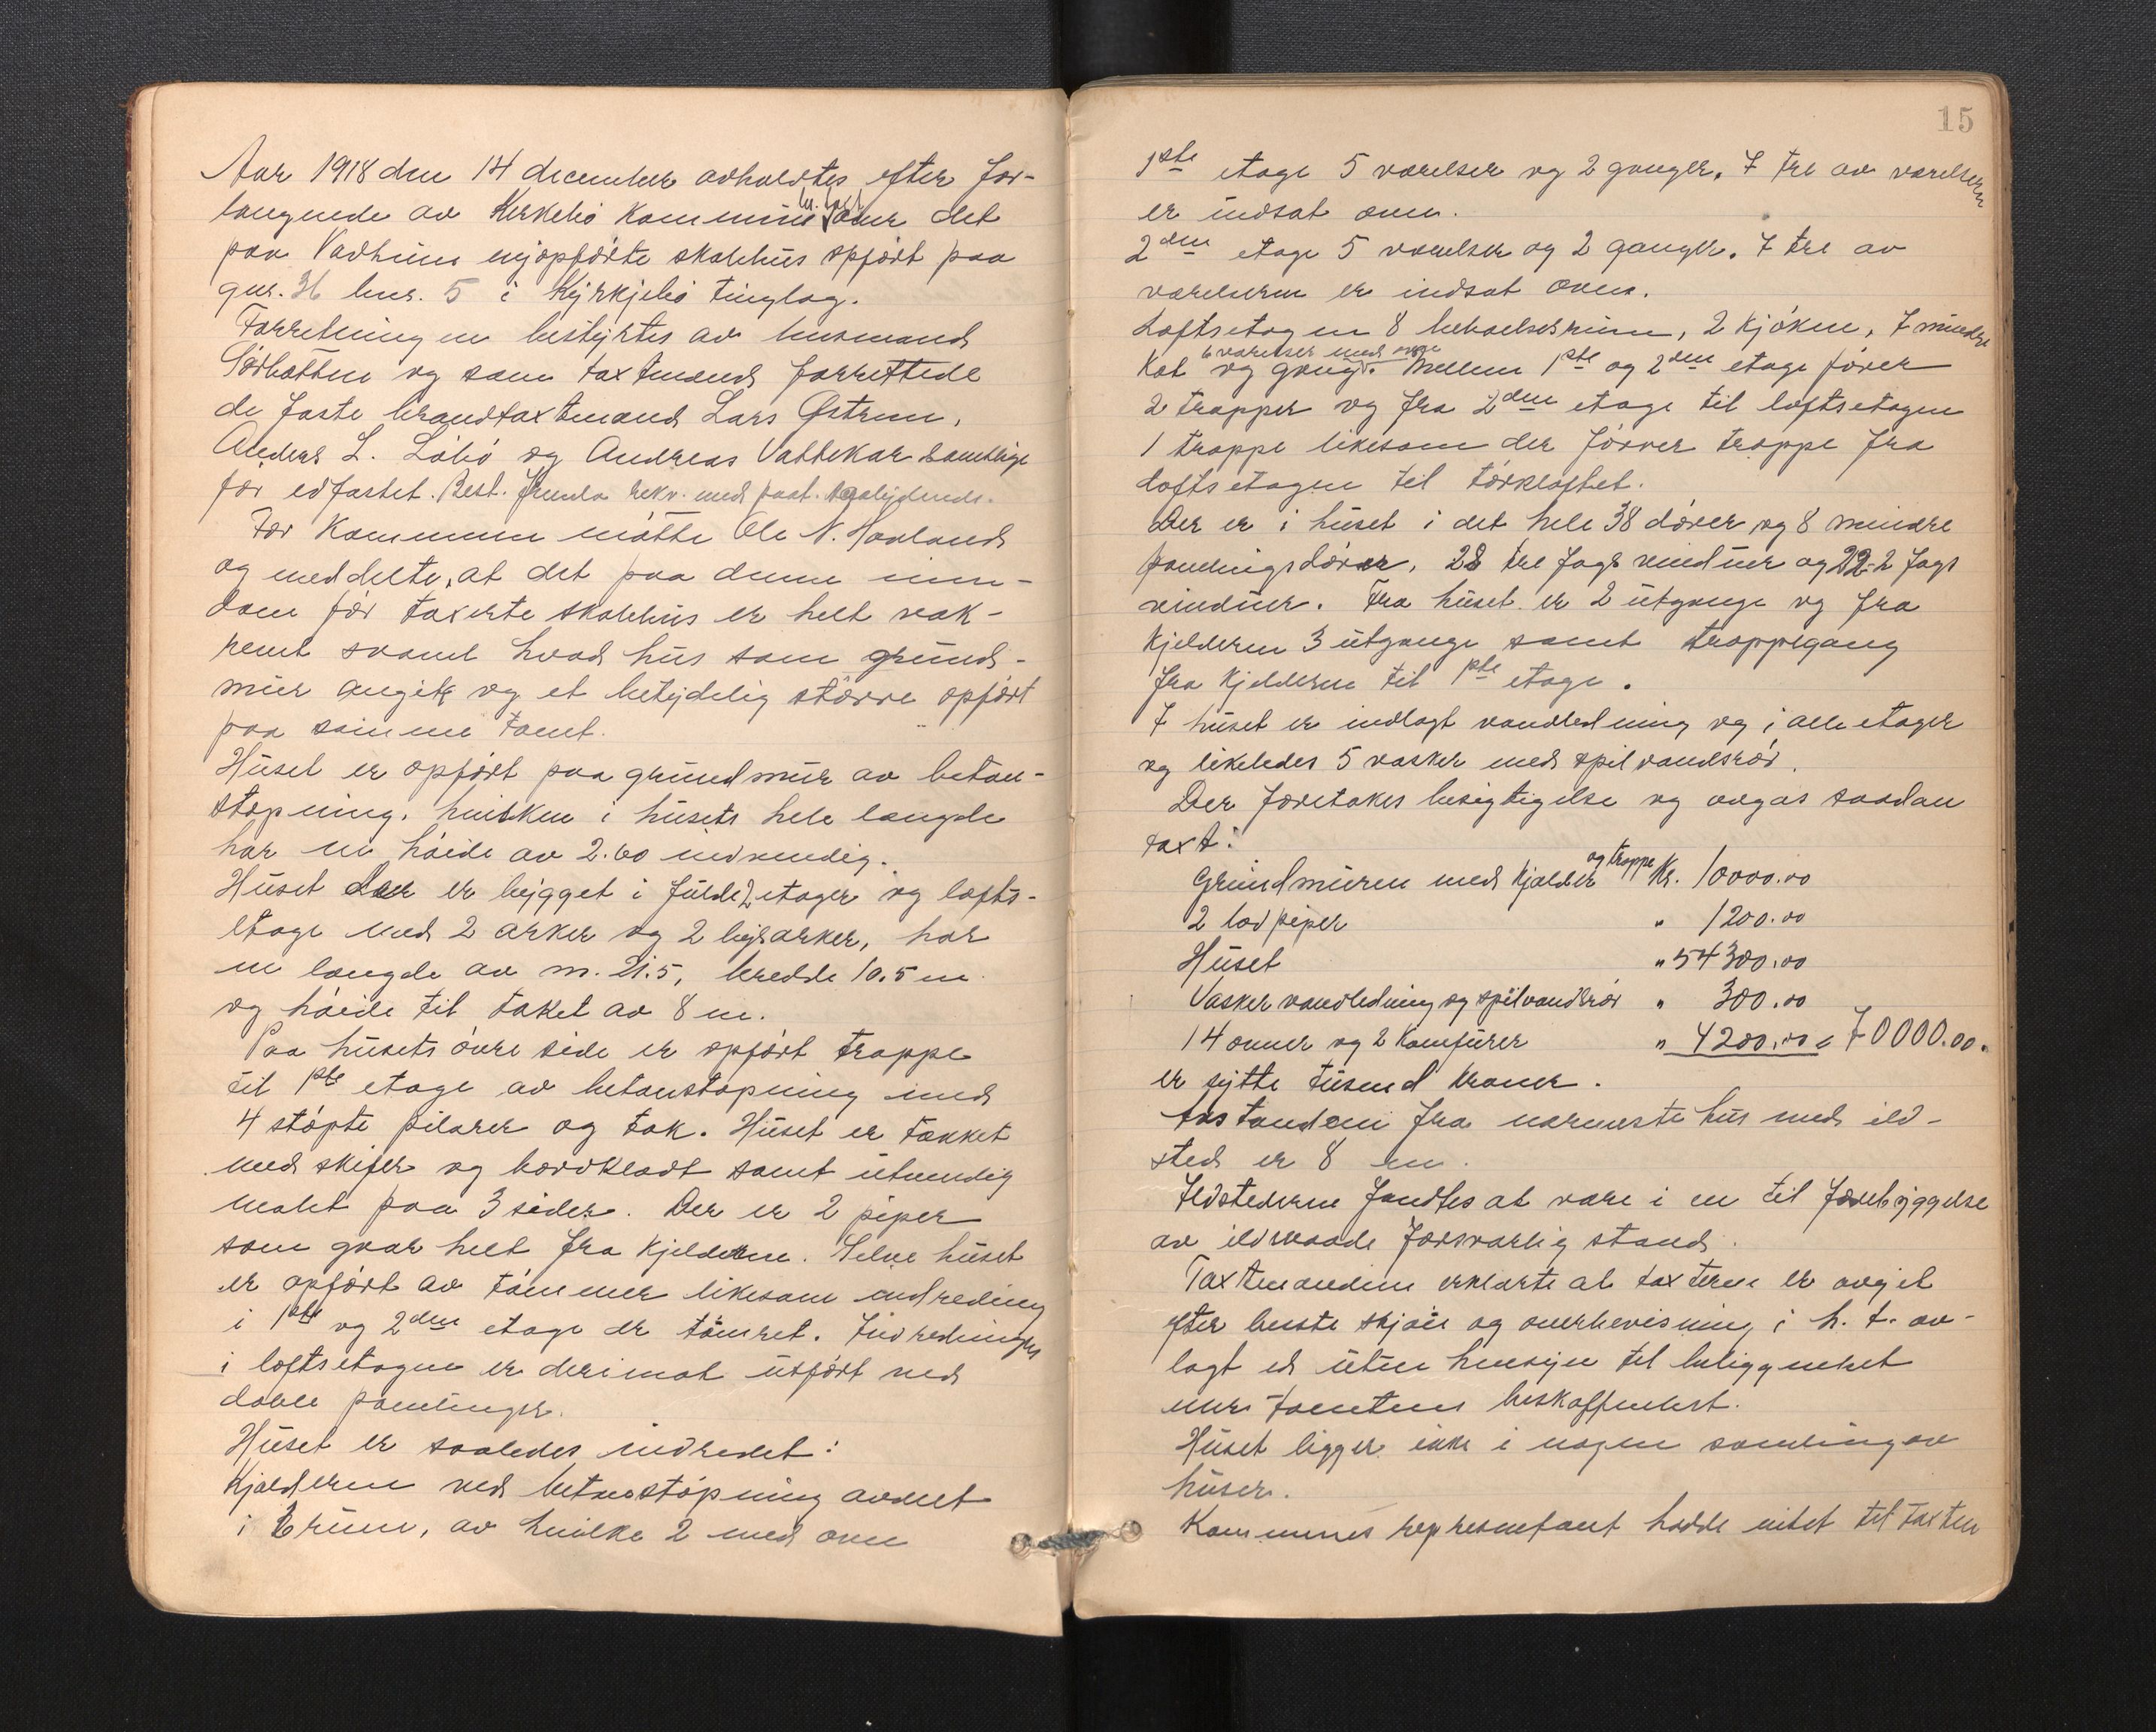 Aar 1918 den 14 december avholdtes efter for-
langende av Kirkebø kommune over det
paa Vadheim nyopførte skolehus opført paa
gnr. 36 bnr. 5 i Kyrkjebø tinglag.
Forretningen bestyrtes av lensmand
Sørbotten og som taxtmænd forrettede
de faste brandtaxtmænd Lars Østrem,
Anders L. Løbø og Andreas Vattekar samtlige
før edfæstet. Best. fremla rekv. med paat. saalydende.
For kommunen møtte Ole N. Hovland
og meddelte, at det paa denne eien-
dom før taxerte skolehus er helt væk-
revet saavel hvad hus som grund-
mur angik og et betydelig større opført
paa samme tomt.
Huset er opført paa grundmur av beton-
støpning, hvilken i husets hele længde
har en høide av 2.60 indvendig.
Huset er bygget i fulde 2 etager og lofts-
etage med 2 arker og 2 byrarker, har
en længde av m. 21.5, bredde 10.5 m
og høide til taket av 8 m.
Paa husets øvre side er opført trappe
til 1ste etage av betonstøpning med
4 støpte pilarer og tak. Huset er tækket
med skifer og bordklædt samt utvendig
malet paa 3 sider. Der er 2 piper
som gaar helt fra kjelderen. Selve huset
er opført av tømmer likesom indredning
i 1ste og 2den etage er tømret. Indredningen
i loftsetagen er derimot utført ved
doble panelinger.
Huset er saaledes indredet:
Kjælderen ved betonstøpning avdelt
i 6 rum, av hvilke 2 med ovn
15
1ste etage 5 værelser og 2 ganger. I tre av værelsern
er indsat ovn.
2den etage 5 værelser og 2 ganger. I tre av
værelserne er indsat ovne.
Loftsetagen 8 beboelsesrum, 2 kjøken, 7 mindre
6 værelser med ovne
kot og gang. Mellem 1ste og 2den etage fører
2 trapper og fra 2den etage til loftsetagen
1 trappe likesom der fører trappe fra
loftsetagen til tørkloftet.
Der er i huset i det hele 38 dører og 8 mindre
panelingsdører, 28 tre fags vinduer og 22 2 fags
vinduer. Fra huset er 2 utgange og fra
kjelderen 3 utgange samt trappegang
fra kjelderen til 1ste etage.
I huset er indlagt vandledning og i alle etager
og likeledes 5 vasker med spilvandsrør.
Der foretokes besigtigelse og avgas saadan
taxt:
Grundmuren med kjælder og trappe Kr. 10000.00
2 lod piper " 1200.00
Huset " 54300.00
Vasker vandledning og spilvandsrør " 300.00
14 ovner og 2 komfurer " 4200.00 = 70000.00.
er sytti tusend kroner.
Avstanden fra nærmeste hus med ild-
sted er 8 m.
Ildstederne fandtes at være i en til forebyggelse
av ildsvaade forsvarlig stand.
Taxtmændene erklærte at taxterne er avgit
efter beste skjøn og overbevisning i h. t. av-
lagt ed uten hensyn til beliggenhet
eller tomtens beskaffenhet.
Huset ligger ikke i nogen samling av
huser.
Kommunes representant hadde intet til taxten